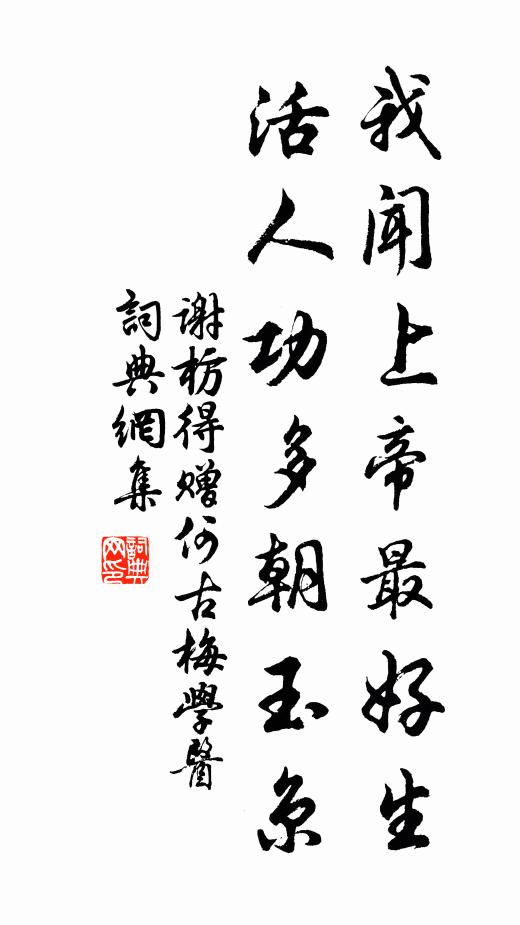 我闻上帝最好生
活人功多朝玉京
谢枋得赠何古梅學醫
詞典網集
詞典网印